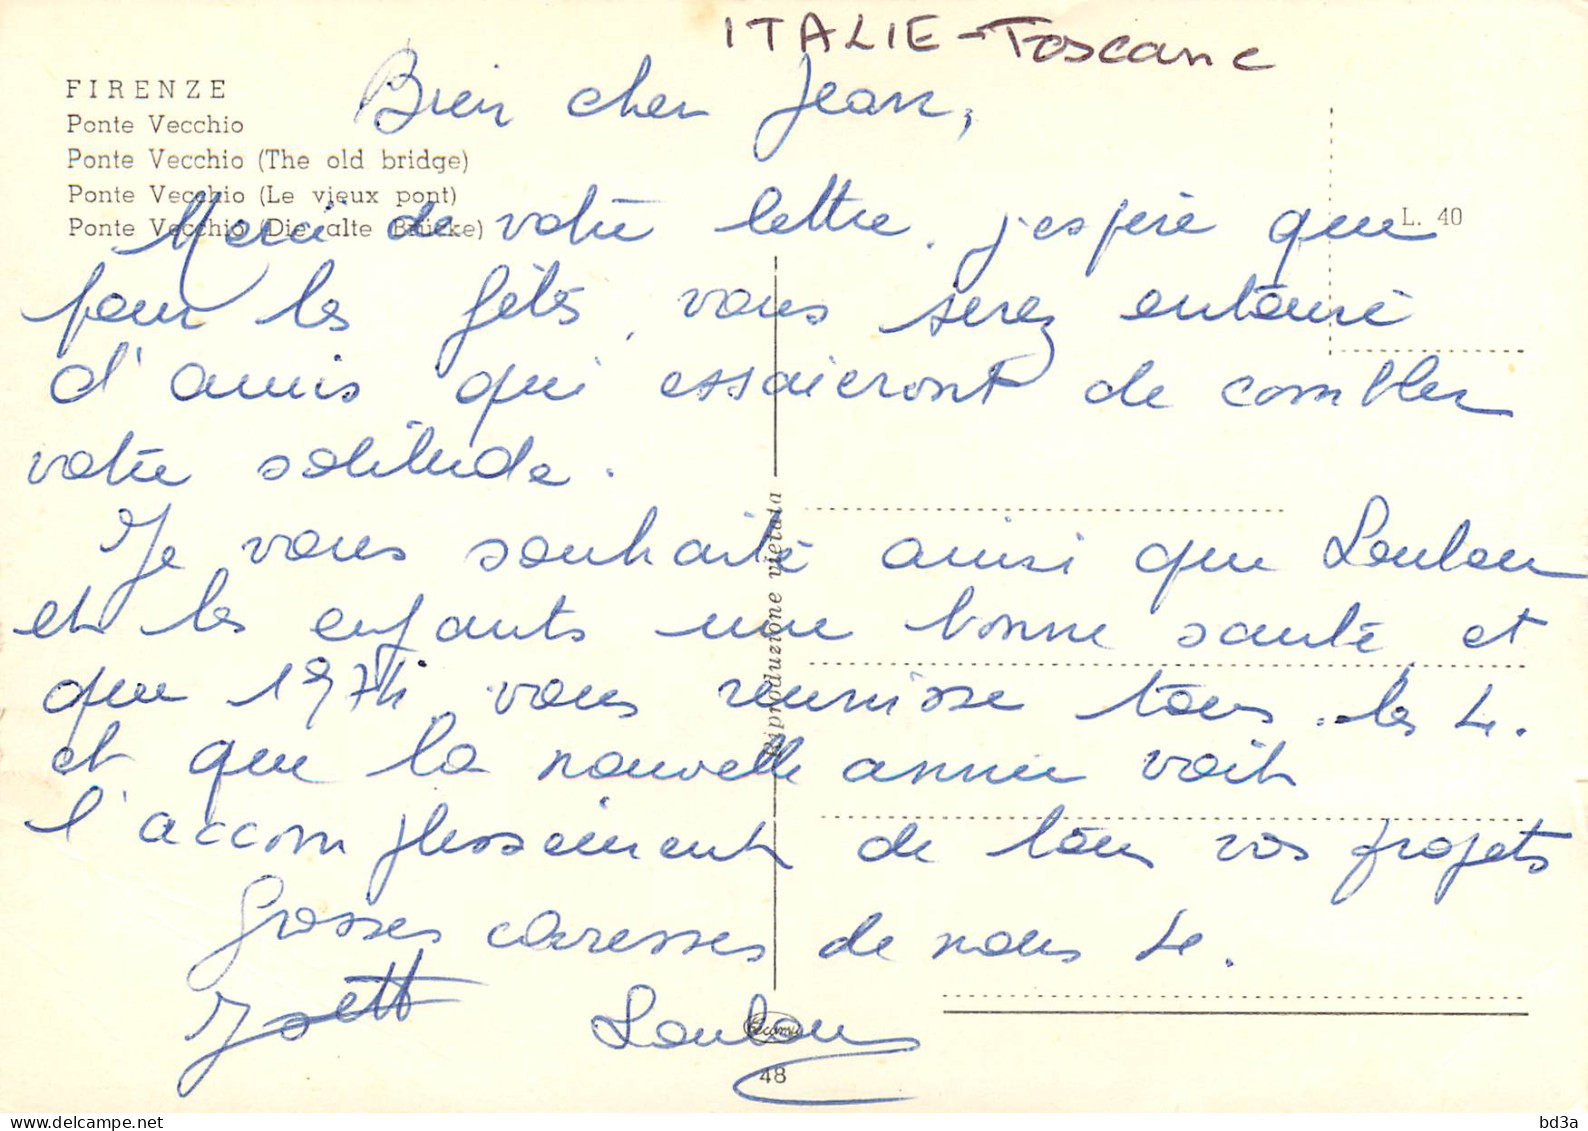 ITALIE - Toscane
FIRENZE
Ponte Vecchio
Ponte Vecchio (The old bridge)
Ponte Vecchio (Le vieux pont)
Ponte Vecchio (Die alte Brücke)
L. 40
Bien cher Jean,
Merci de votre lettre. j'espère que
pour les fêtes, vous serez entouré
d'amis qui essaieront de combler
votre solitude.
Je vous souhaite ainsi que Loulou
et les enfants une bonne santé et
que 1974 vous reunisse tous les 4.
et que la nouvelle année voit
l'accomplissement de tous vos projets
Grosses caresses de nous 4.
Loulou
Riproduzione vietata
48
bd3a